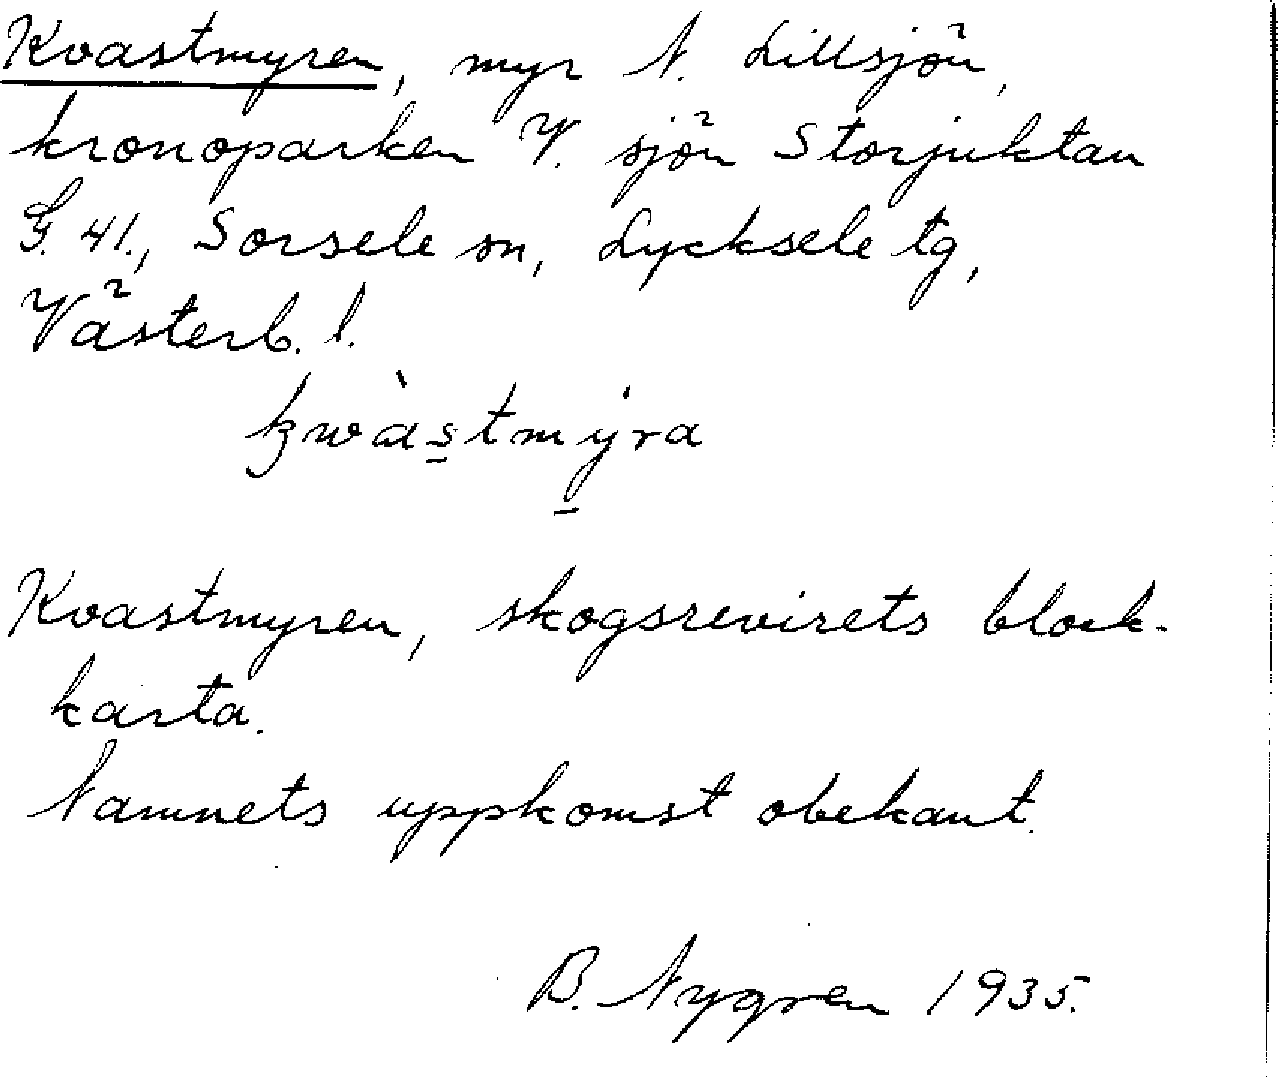 Kvastmyren, myr N. Lillsjön,
kronoparken V. sjön Storjuktan
G. 41., Sorsele sn, Lycksele tg,
Västerb. l.
kwàstmyra
Kvastmyren, skogsrevirets block-
karta.
Namnets uppkomst obekant.
B. Nygren 1935.